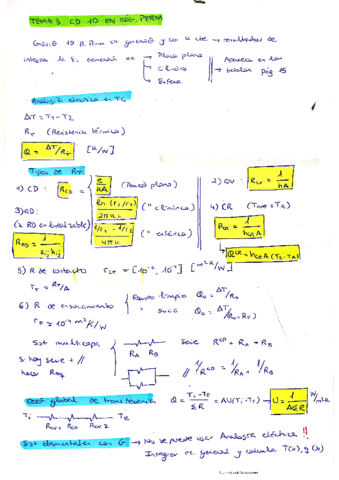 TEMA 3. CD 1D EN RÉG. PERM
CD 1D R. Perm en general y con k cte → resultados de
integrar la E. General en → Placa plana
→ Cilindro
→ Esfera
Aparece en las
tablas pág 15
Analogía eléctrica en TC
ΔT = T1 - T2
RT (Resistencia térmica)
Q = ΔT/RT [K/W]
Tipos de RT:
1) CD: RCD = e/kA (Pared plana)
ln(r2/r1)/2πkL (" cilíndrica)
1/r1 - 1/r2 / 4πk (" esférica)
2) CV: RCV = 1/hA
3) RD:
(x RD en linealizable)
RRD = 1/Kij hij
4) CR (T∞e = TR)
RCR = 1/hCR A
QCR = hCR A (TS - TR)
5) R de contacto rCT = [10⁻², 10⁻⁷] [m²K/W]
rT = RT/A
6) R de ensuciamiento
rF ≈ 10⁻⁴ m²K/W
Equipo limpio Q0 = ΔT/R0
" sucio Q0 = ΔT/(R0 + RF)
Sist multicapa
RA RB
Serie RCD = RA + RB
Si hay serie + //
hacer Req
// 1/RCD = 1/RA + 1/RB
Coef global de transferencia Q = Ti - Te / ΣR = AU(Ti - Te) → U = 1/AΣR W/m²K
Ti Te
RCV1 RCD RCV2
Sist elementales con G → No se puede usar Analogía eléctrica !!
Integrar ec general y calcular T(x), q(x)